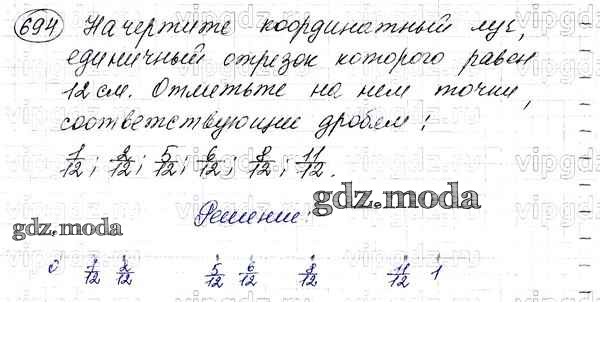 694 Начертите координатный луч,
единичный отрезок которого равен
12 см. Отметьте на нем точки,
соответствующие дробям:
1/12; 2/12; 5/12; 6/12; 8/12; 11/12.
gdz.moda
Решение:
gdz.moda
0 1/12 2/12 5/12 6/12 8/12 11/12 1